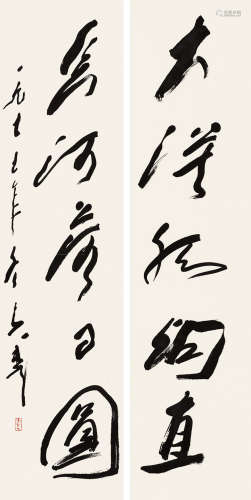 大漠孤烟直
长河落日圆
一九七七年